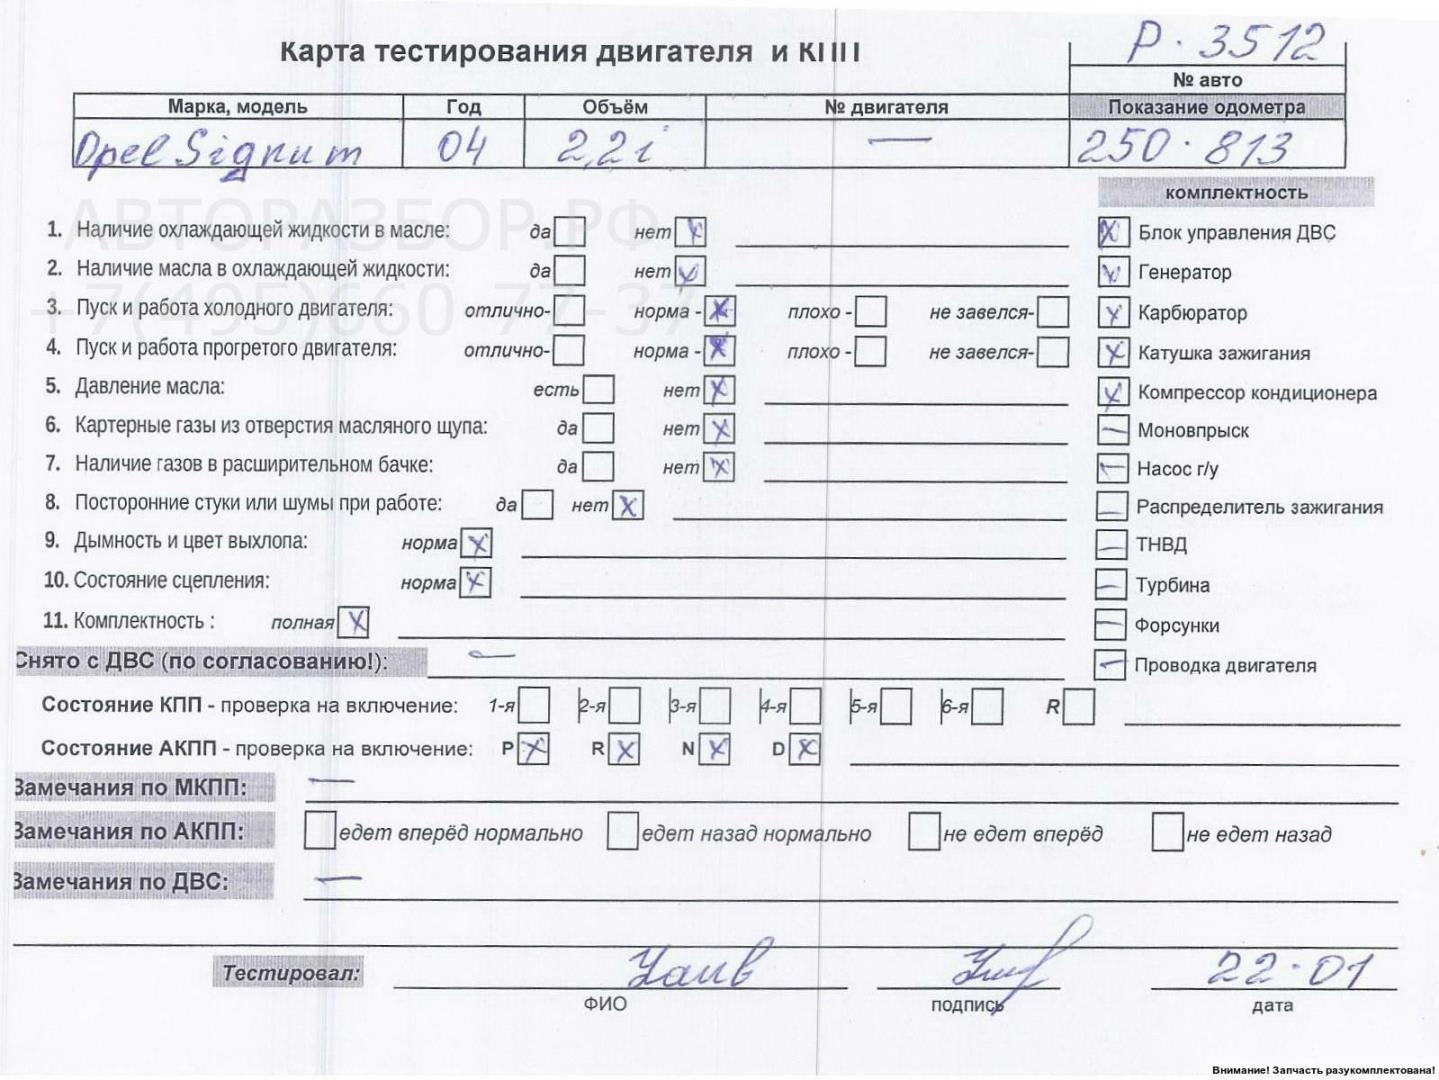 Карта тестирования двигателя и КПП
Р · 3512
№ авто
Марка, модель Год Объём № двигателя Показание одометра
Opel Signum 04 2,2i — 250 · 813
АВТОРАЗБОР.РФ
+7(495)660-77-37
комплектность
1. Наличие охлаждающей жидкости в масле: да нет x
x Блок управления ДВС
2. Наличие масла в охлаждающей жидкости: да нет x
x Генератор
3. Пуск и работа холодного двигателя: отлично- норма - x плохо - не завелся-
x Карбюратор
4. Пуск и работа прогретого двигателя: отлично- норма - x плохо - не завелся-
x Катушка зажигания
5. Давление масла: есть нет x
x Компрессор кондиционера
6. Картерные газы из отверстия масляного щупа: да нет x
— Моновпрыск
7. Наличие газов в расширительном бачке: да нет x
— Насос г/у
8. Посторонние стуки или шумы при работе: да нет x
— Распределитель зажигания
9. Дымность и цвет выхлопа: норма x
— ТНВД
10. Состояние сцепления: норма x
— Турбина
11. Комплектность : полная x
— Форсунки
Снято с ДВС (по согласованию!): —
— Проводка двигателя
Состояние КПП - проверка на включение: 1-я 2-я 3-я 4-я 5-я 6-я R
Состояние АКПП - проверка на включение: P x R x N x D x
Замечания по МКПП: —
Замечания по АКПП: едет вперёд нормально едет назад нормально не едет вперёд не едет назад
Замечания по ДВС: —
Тестировал: 22·01
ФИО подпись дата
Внимание! Запчасть разукомплектована!